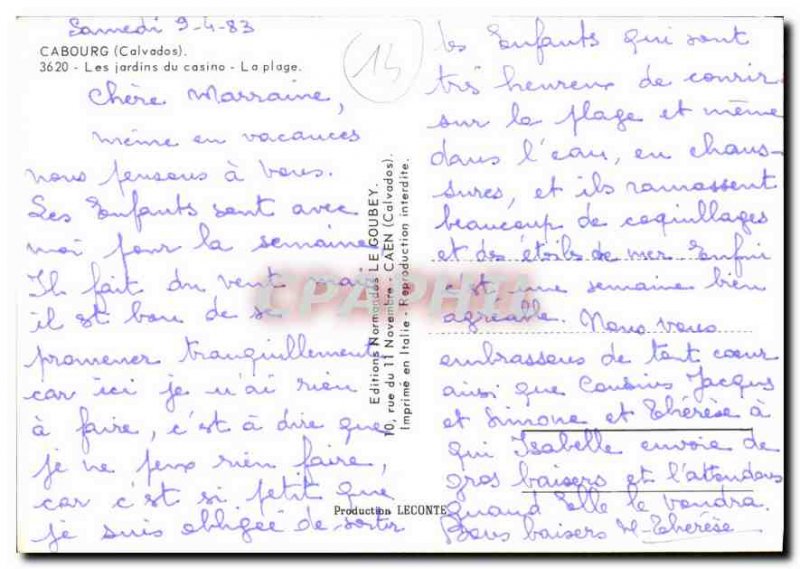 Samedi 9-4-83
CABOURG (Calvados).
3620 - Les jardins du casino - La plage.
14
Chère Marraine,
même en vacances
nous pensons à vous.
Les Enfants sont avec
moi pour la semaine
Il fait du vent mais
il est bon de se
promener tranquillement
car ici je n'ai rien
à faire, c'est à dire que
je ne peux rien faire,
car c'est si petit que
je suis obligée de sortir
Editions Normandes LE GOUBEY.
10, rue du 11 Novembre - CAEN (Calvados).
Imprimé en Italie - Reproduction interdite.
CPAPHIL
Production LECONTE
les Enfants qui sont
très heureux de courir
sur la plage et même
dans l'eau, en chaus-
sures, et ils ramassent
beaucoup de coquillages
et des étoils de mer Enfin
c'est une semaine bien
agréable. Nous vous
embrassons de tout cœur
ainsi que Cousins Jacques
et Simone et Thérèse à
qui Isabelle envoie de
gros baisers et l'attendons
quand Elle le voudra.
Bons baisers M-Thérèse